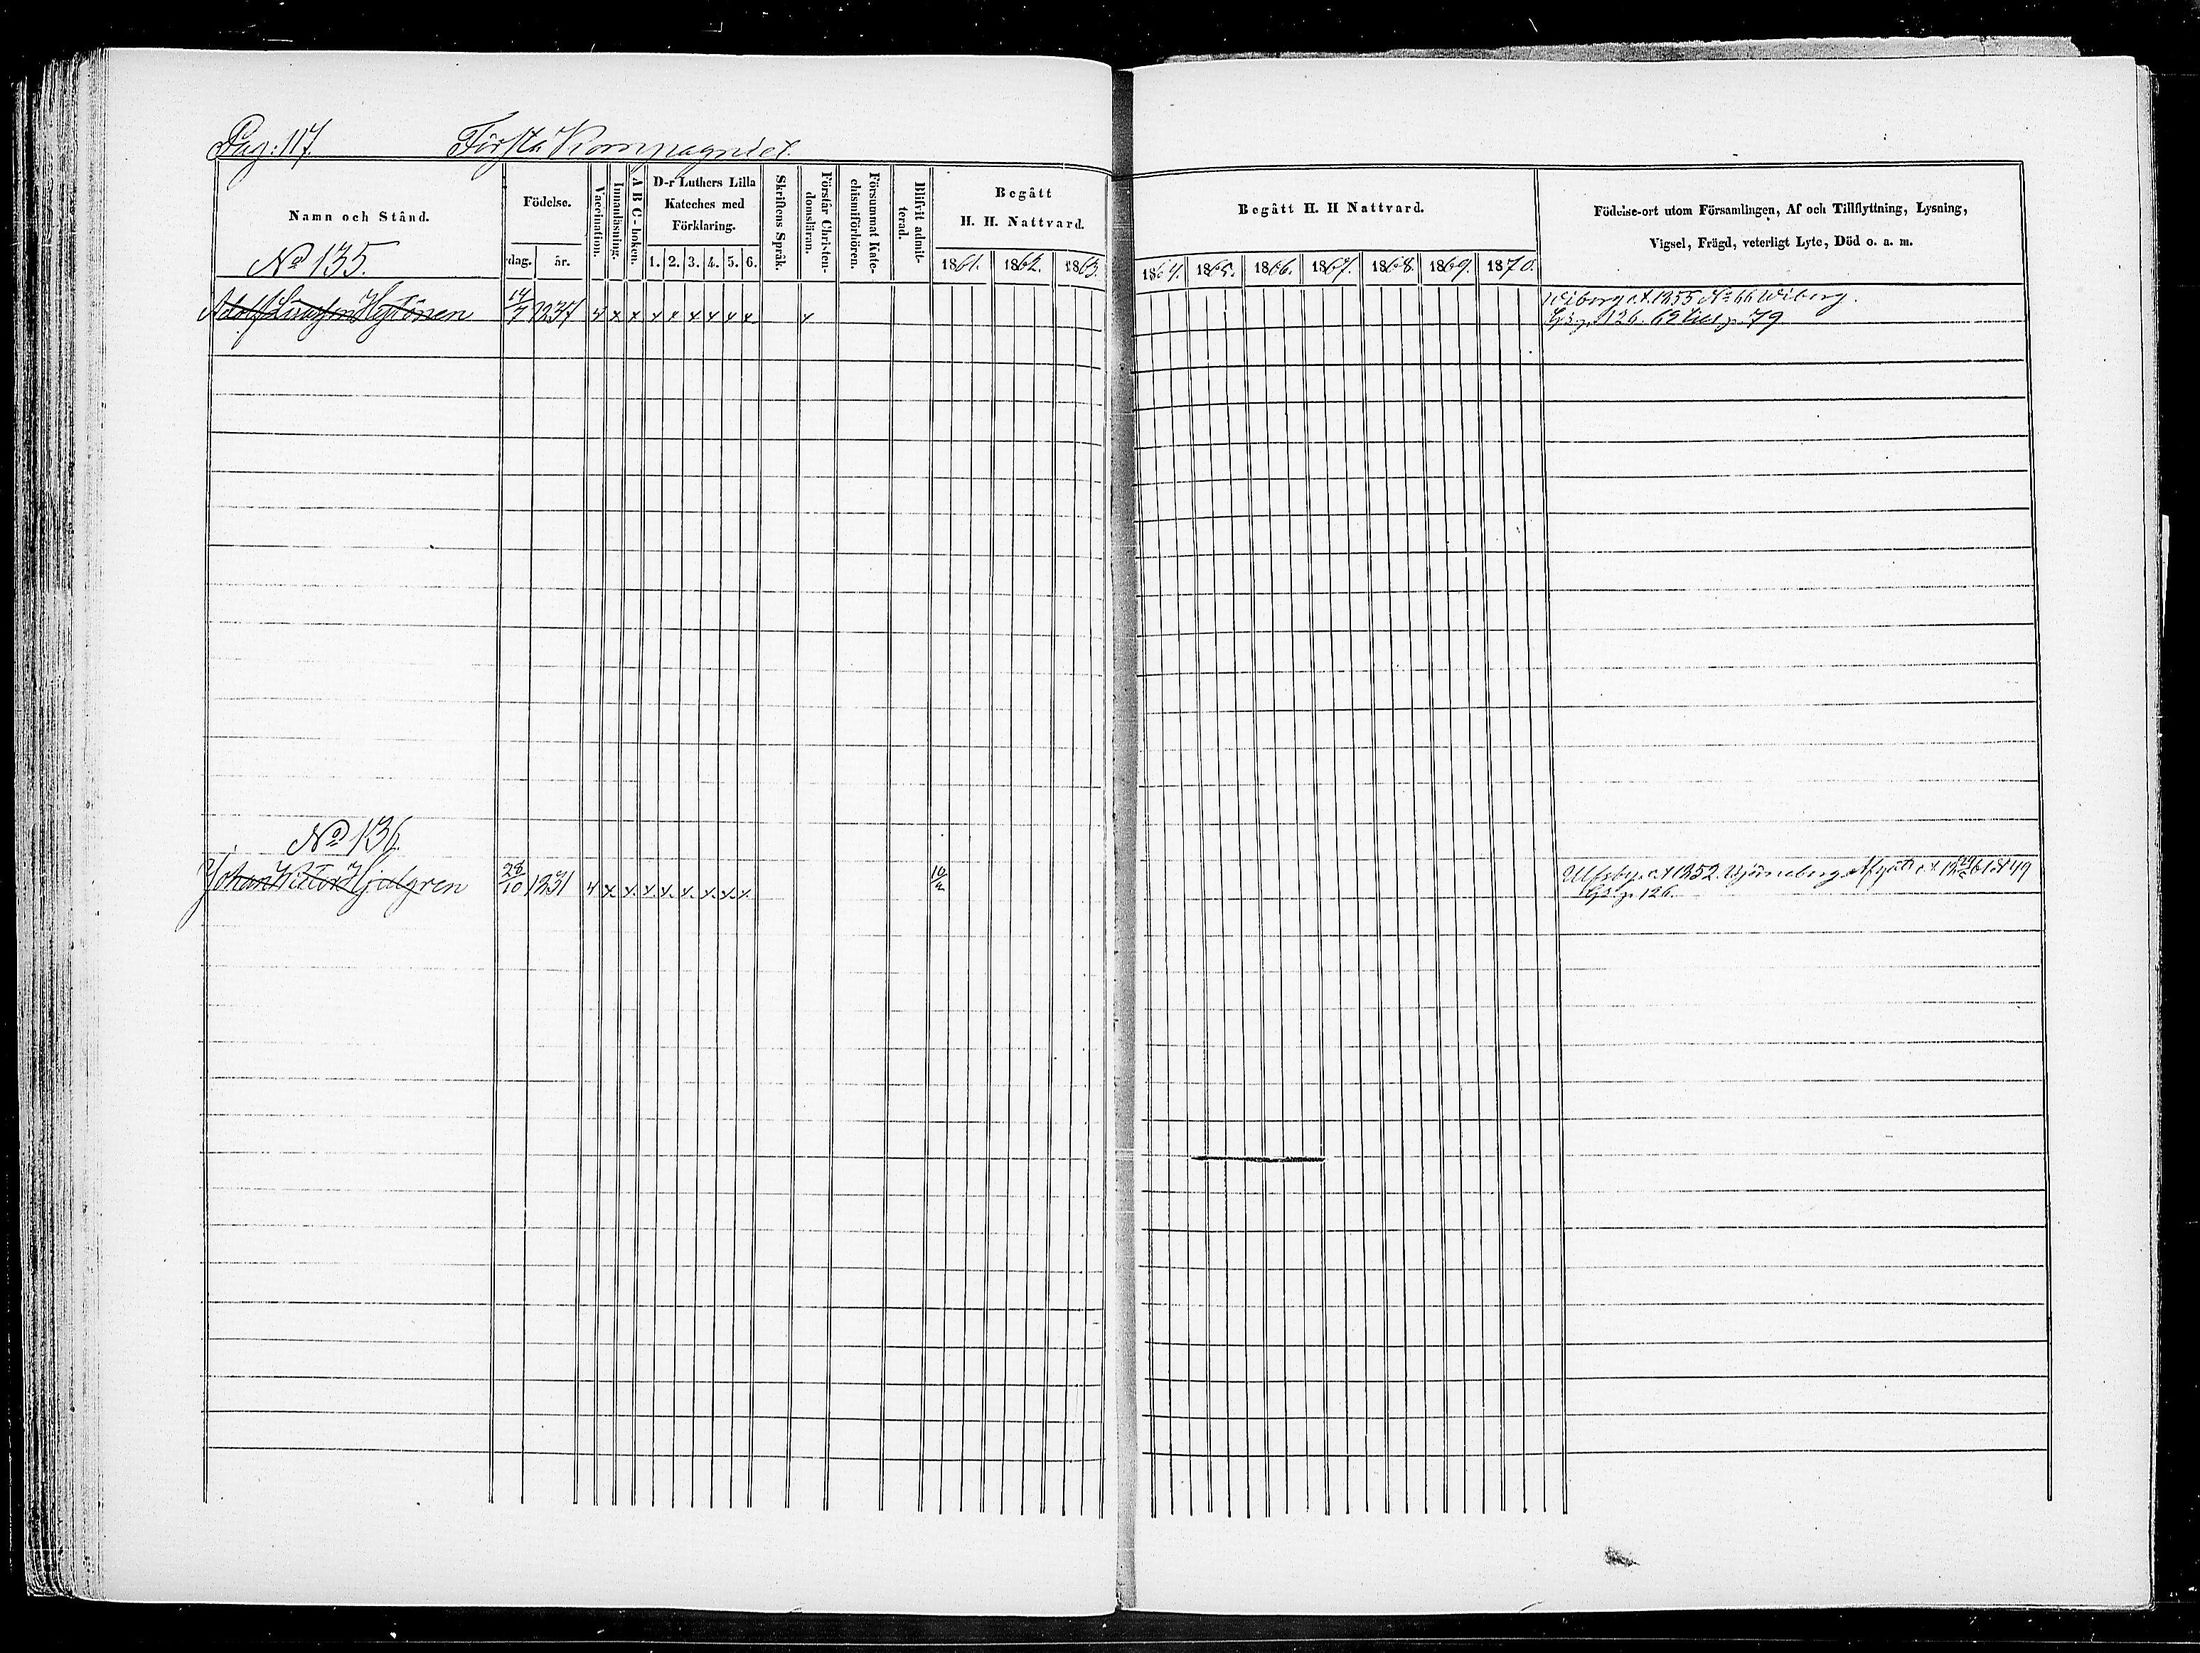 Pag: 117. Första Kompagniet.
Namn och Stånd.
Födelse.
dag. år.
Vaccination.
Innanläsning.
A B C-boken.
D-r Luthers Lilla
Kateches med
Förklaring.
1. 2. 3. 4. 5. 6.
Skriftens Språk.
Förstår Christen-
domsläran.
Försummat Kate-
chismiförhören.
Blifvit admit-
terad.
Begått
H. H. Nattvard.
1861. 1862. 1863.
Begått H. H Nattvard.
1864. 1865. 1866. 1867. 1868. 1869. 1870.
Födelse-ort utom Församlingen, Af och Tillflyttning, Lysning,
Vigsel, Frägd, veterligt Lyte, Död o. a. m.
No 135.
Adolf Hytönen 14/7 1837 x x x x x x x x x x Wiborg 1855 No 66 Wiborg.
p. 126. 69 p. 79
No 136.
Johan Viktor Hjulgren 28/10 1831 x x x x x x x x x 10/2 Ulfsby 1852. Björneborg
p. 126.